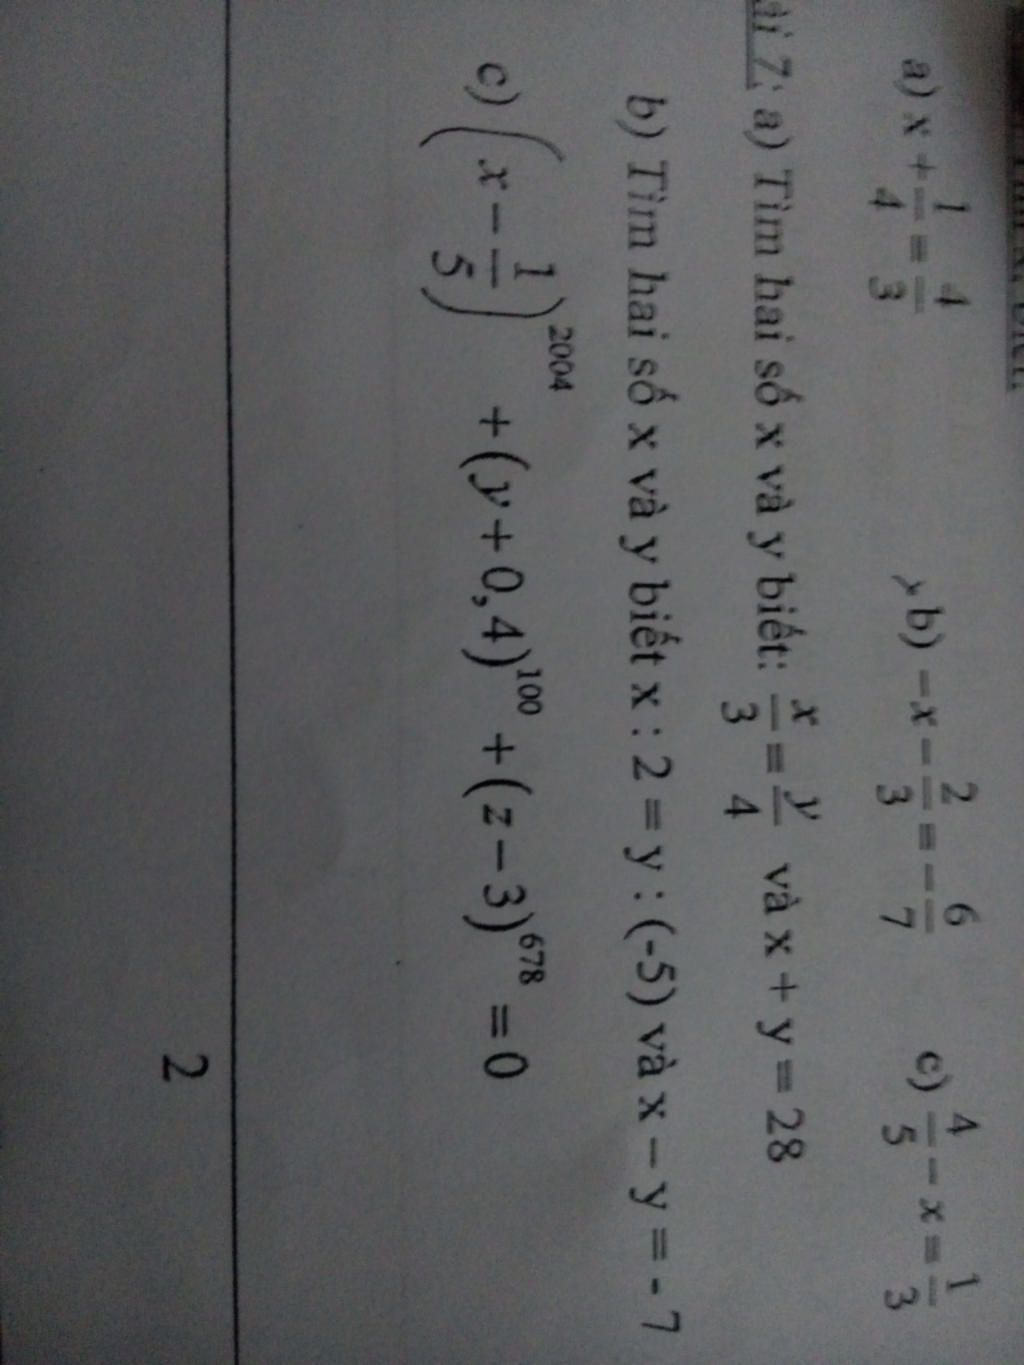 a) x + 1/4 = 4/3 b) −x − 2/3 = −6/7 c) 4/5 − x = 1/3
7: a) Tìm hai số x và y biết: x/3 = y/4 và x + y = 28
b) Tìm hai số x và y biết x : 2 = y : (-5) và x – y = - 7
c) (x − 1/5)^2004 + (y + 0,4)^100 + (z − 3)^678 = 0
2